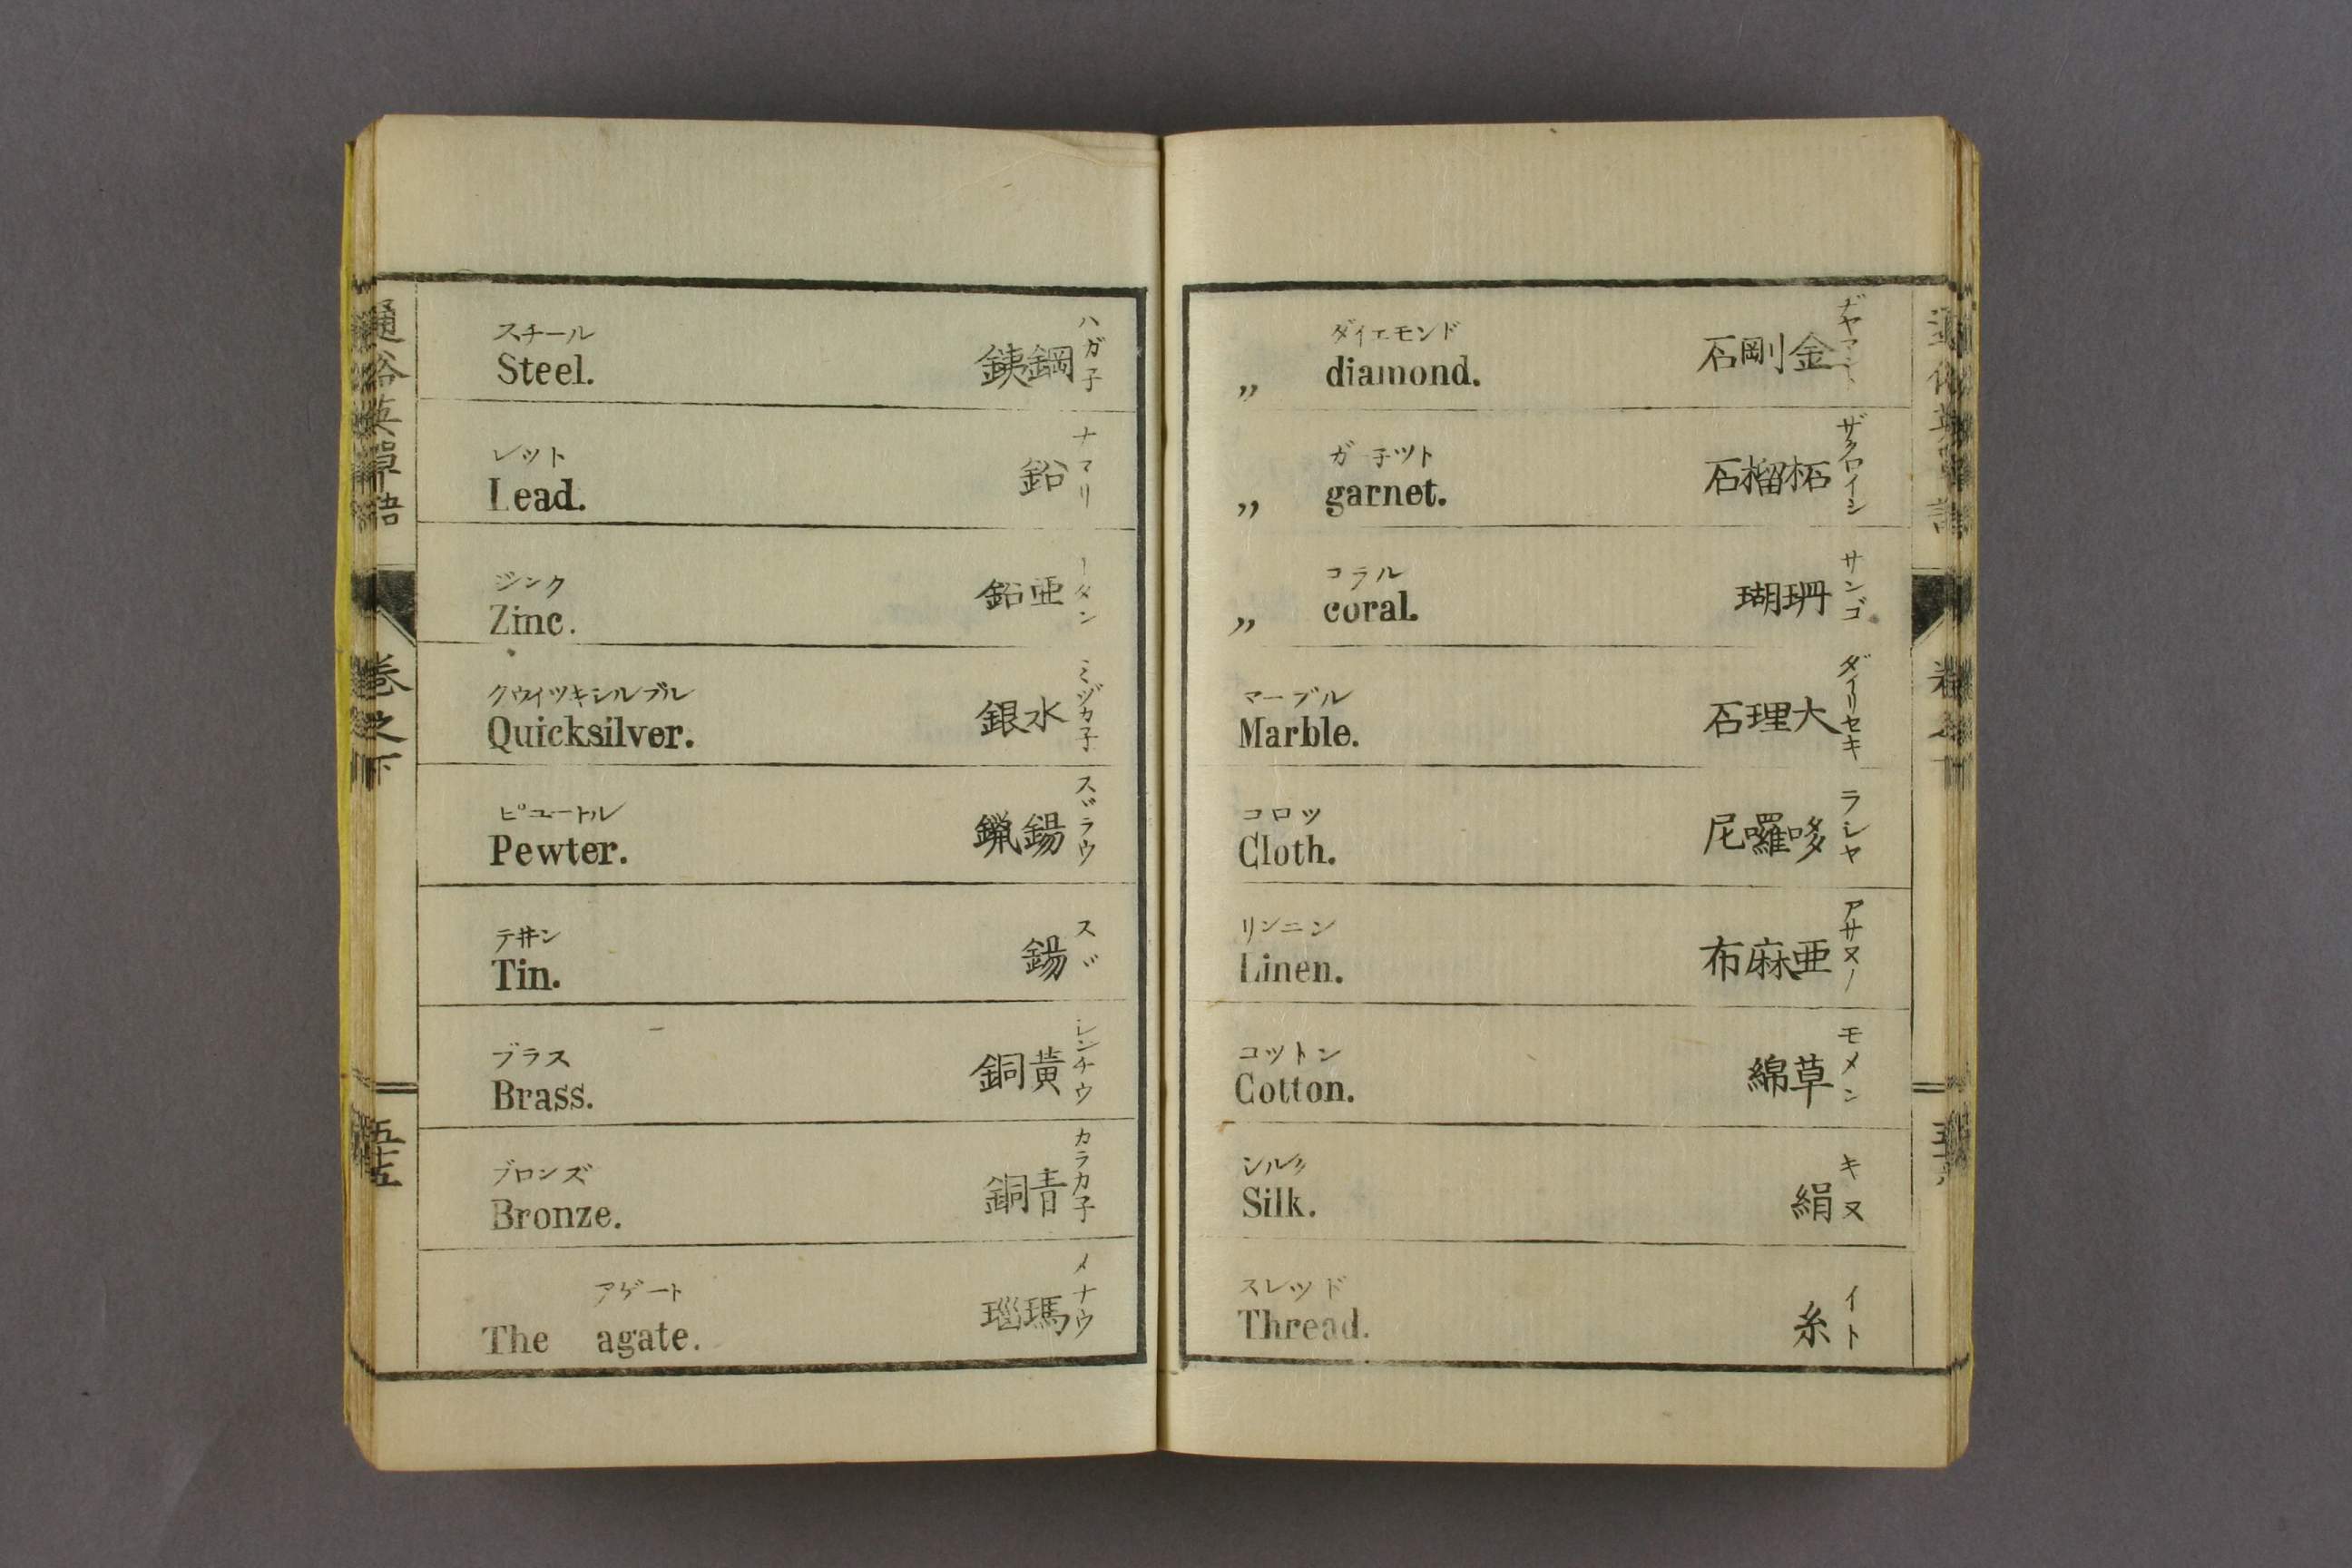 通俗英單語
巻之下
五十五
スチール
Steel.
銕鋼
ハガ子
レット
Lead.
鉛
ナマリ
ジンク
Zinc.
鉛亜
タン
クウィツキシルブル
Quicksilver.
銀水
ミヅカ子
ピユートル
Pewter.
鑞鍚
スヾラウ
テ井ン
Tin.
鍚
スヾ
ブラス
Brass.
銅黄
シンチウ
ブロンズ
Bronze.
銅青
カラカ子
アゲート
The agate.
瑙瑪
メナウ
ダイエモンド
„ diamond.
石剛金
ギヤマン
ガ子ツト
„ garnet.
石榴柘
ザクロイシ
コラル
„ coral.
瑚珊
サンゴ
マーブル
Marble.
石理大
ダイリセキ
コロツ
Cloth.
尼囉哆
ラシヤ
リンニン
Linen.
布麻亜
アサヌノ
コットン
Cotton.
綿草
モメン
シルク
Silk.
絹
キヌ
スレッド
Thread.
糸
イト